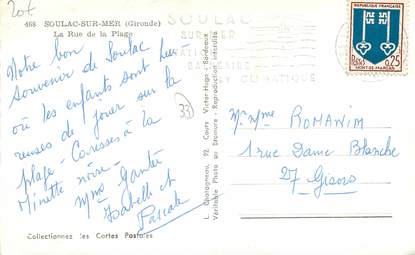 20f
468 SOULAC-SUR-MER (Gironde)
La Rue de la Plage
SOULAC
SUR MER
BALNEAIRE
CLIMATIQUE
RÉPUBLIQUE FRANÇAISE
0,25
POSTES
MONT-DE-MARSAN
Notre bon
souvenir de Soulac
où les enfants sont heu-
reuses de jouer sur la
plage - Caresses à la
Minette noire -
Mme Gantié
Isabelle et
Pascale
33
L. Chatagneau, 92, Cours Victor Hugo - Bordeaux
Véritable Photo au Bromure - Reproduction interdite
M. Mme ROMANIM
1 rue Dame Blanche
27 Gisors
Collectionnez les Cartes Postales